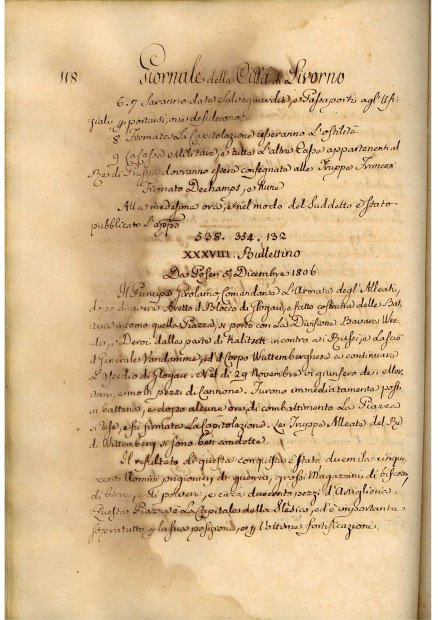 118 Giornale della Città di Livorno
6.7 Saranno date Salvaguardie, e Passaporti agl'Uffi-
ziali p portarsi, ove desiderano.
8 Firmata La Capitolazione cesseranno L'ostilità
9 La Cassa Militare, e tutte L'altre Casse appartenenti al
Re di Prussia dovranno essere consegnate alle Truppe Francesi
Firmato Dechamps, e Rune
Alla medesima ora, e nel modo del Suddetto è stato
pubblicato L'appo
538. 354. 132
XXXVIII. Bullettino
Da Posen 5 Dicembre 1806
Il Principe Girolamo Comandante L'Armata degl'Alleati,
dopo di avere stretto il Blocco di Glogau, e fatto costruire delle Bat-
terie intorno quella Piazza, si portò con La Divisione Bavara Wre-
da, e Deroi dalla parte di Kalitsch incontro a i Russi, e Lasciò
il Generale Vandamme, ed il Corpo Wuttemberghese a continuare
L'assedio di Glogau. Nel dì 29 Novembre vi giunsero de i Mor-
tari, e molti pezzi di Cannone. Furono immediatamente posti
in batteria, e dopo alcune ore di combattimento La Piazza
si rese, e fù firmata La Capitolazione. Le Truppe Alleate del Re
di Wittemberg si sono ben condotte.
Il resultato di questa conquista è stato duemila cinque-
cento Uomini prigionieri di guerra, grossi Magazzini di biscotto,
di birra, e di polvere, e circa duecento pezzi d'Artiglieria.
Questa Piazza è La Capitale della Slesia, ed è importante
sopratutto p la sua posizione, e p l'ottime fortificazioni.